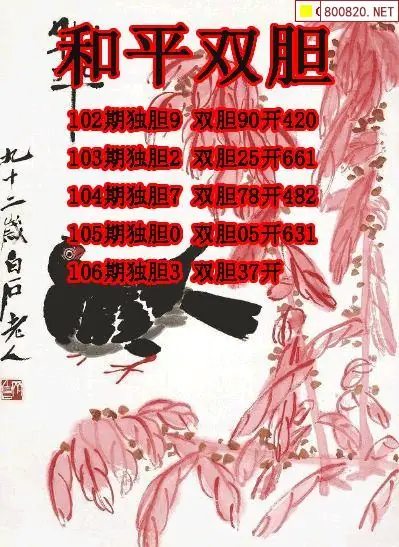 C800820.NET
和平双胆
102期独胆9 双胆90开420
103期独胆2 双胆25开661
104期独胆7 双胆78开482
105期独胆0 双胆05开631
106期独胆3 双胆37开
九十二岁白石老人